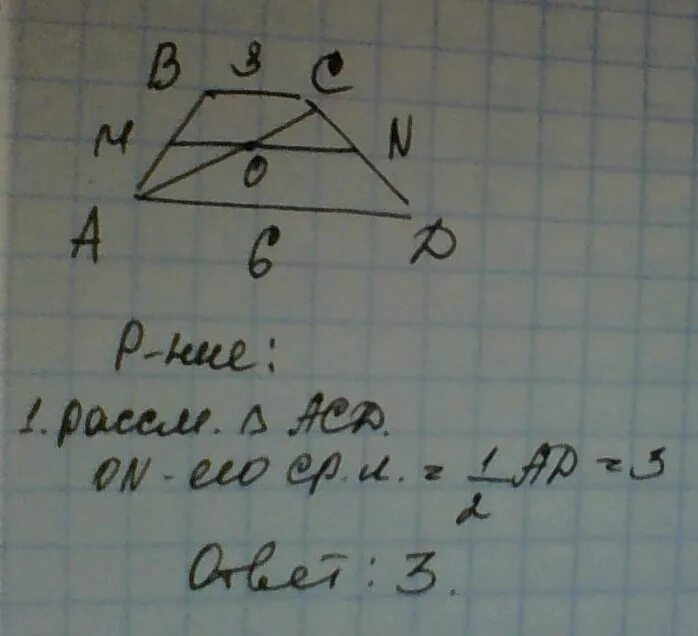 B 3 C
M O N
A 6 D
Р-ние:
1. рассм. Δ ACD.
ON - его ср.л. = 1/2 AD = 3
Ответ: 3.